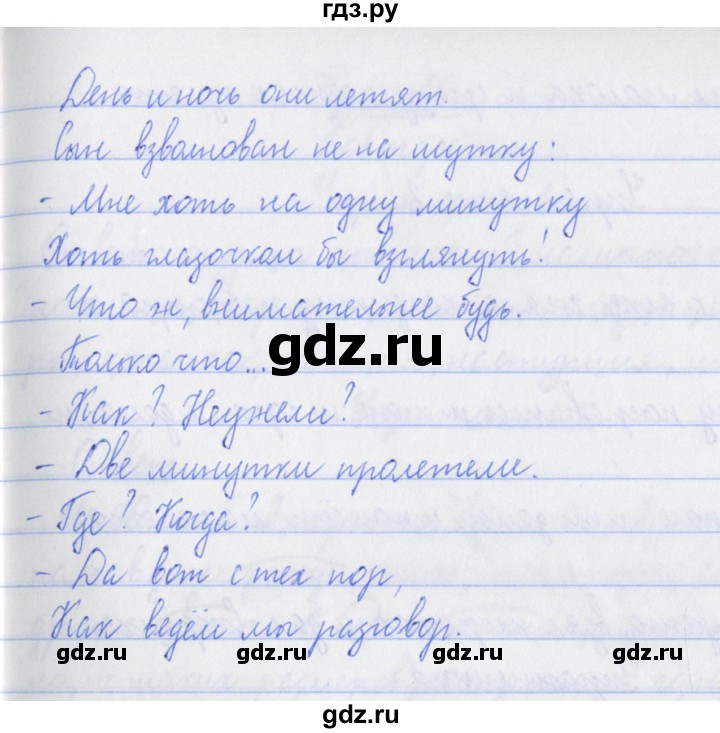 гдз.ру
День и ночь они летят.
Сын взволнован не на шутку:
- Мне хоть на одну минутку
Хоть глазочком бы взглянуть!
- Что ж, внимательнее будь.
gdz.ru
Только что...
- Как? Неужели?
- Две минутки пролетели.
- Где? Когда?
- Да вот с тех пор,
Как ведём мы разговор.
gdz.ru gdz.ru gdz.ru gdz.ru
gdz.ru